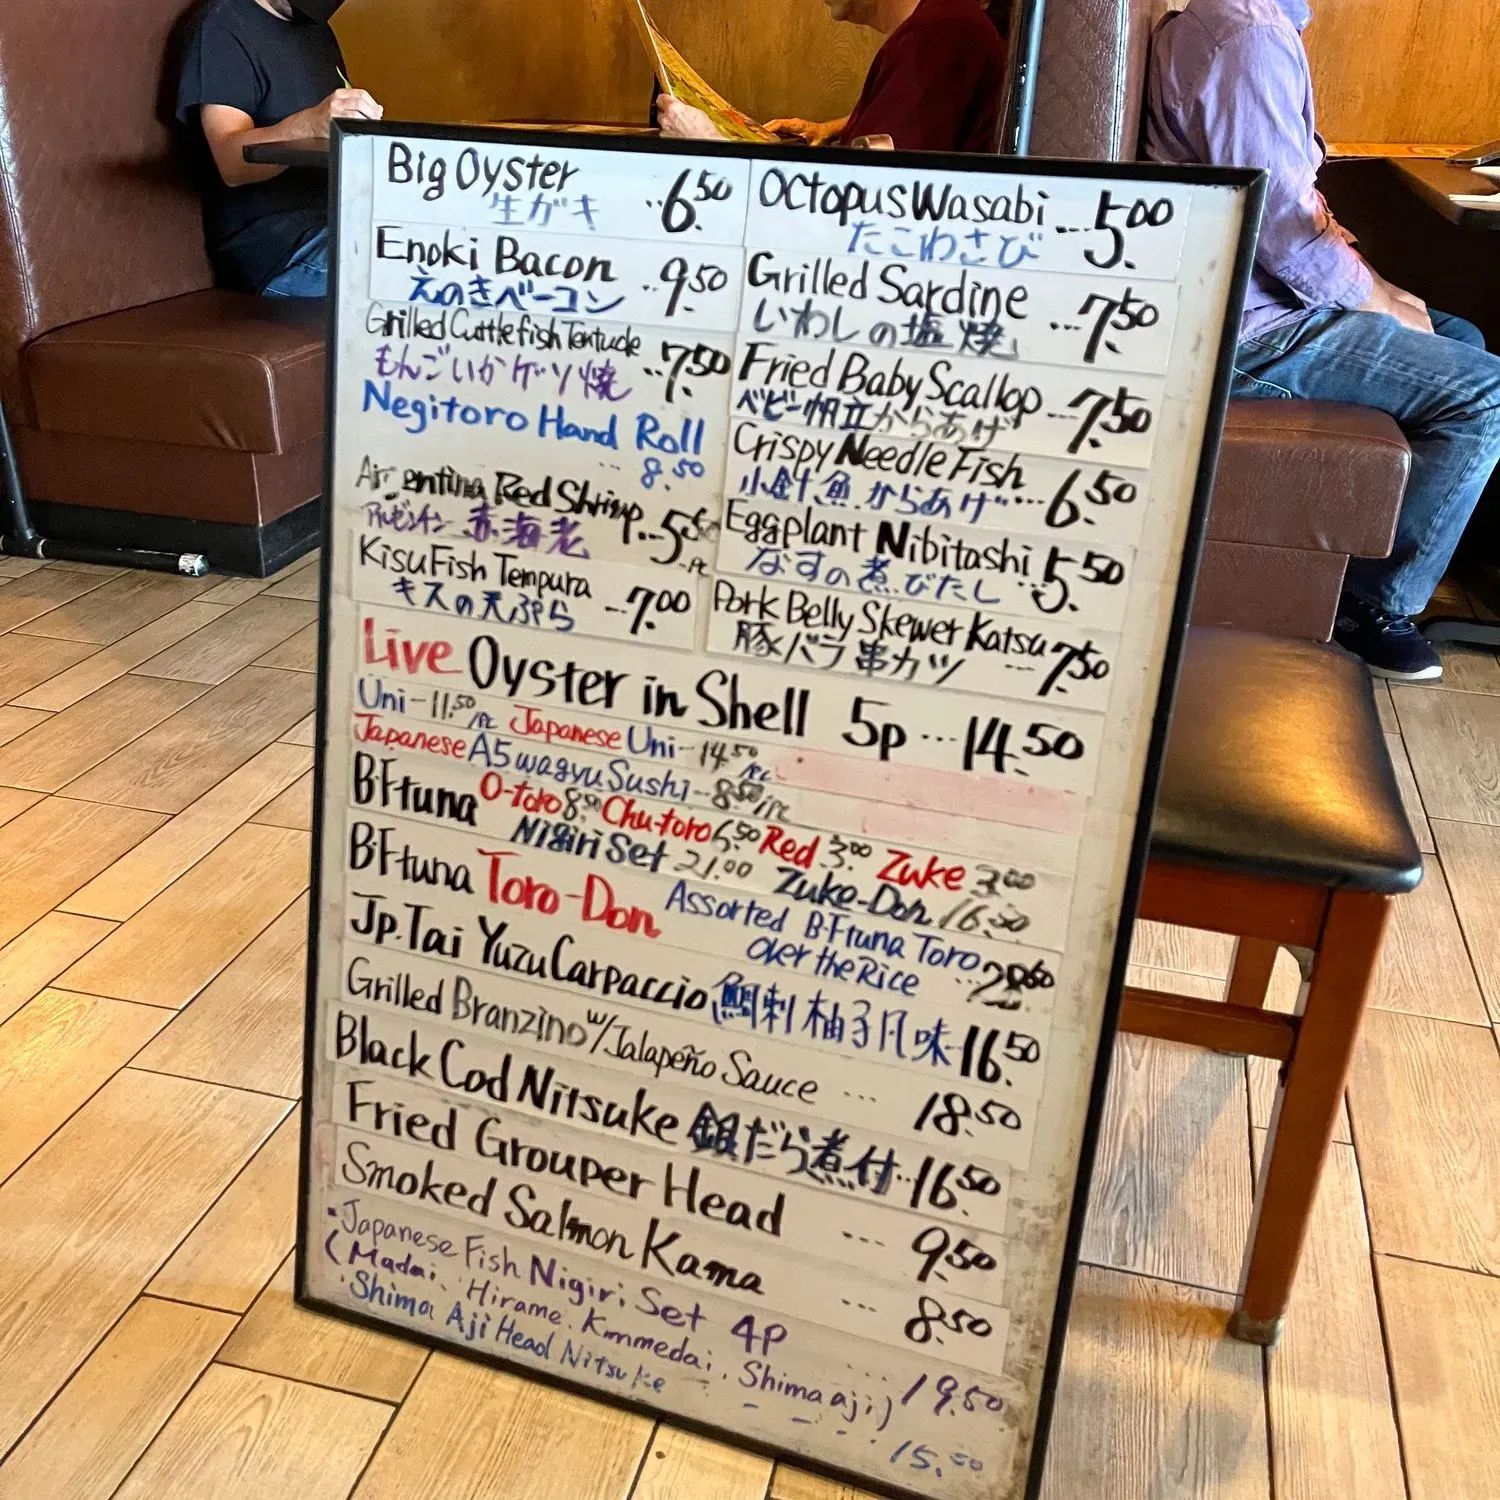 Big Oyster ..6.50
生ガキ
Enoki Bacon ..9.50
えのきベーコン
Grilled Cuttlefish Tentucle ..7.50
もんごいかゲソ焼
Negitoro Hand Roll
... 8.50
Argentina Red Shrimp...5.50 PC
アルゼンチン 赤海老
Kisu Fish Tempura ...7.00
キスの天ぷら
Octopus Wasabi ...5.00
たこわさび
Grilled Sardine ...7.50
いわしの塩焼
Fried Baby Scallop ...7.50
ベビー帆立からあげ
Crispy Needle Fish
小針魚からあげ ...6.50
Eggplant Nibitashi ..5.50
なすの煮びたし
Pork Belly Skewer Katsu ...7.50
豚バラ串カツ
Live Oyster in Shell 5p ...14.50
Uni - 11.50/PC Japanese Uni - 14.50/PC
Japanese A5 wagyu Sushi - 8.50/PC
B.F.tuna O-toro 8.50 Chu-toro 6.50 Red 3.00 Zuke 3.00
Nigiri Set 21.00 Zuke-Don 16.50
B.F.tuna Toro-Don Assorted B.F.tuna Toro
over the Rice ...
Jp.Tai Yuzu Carpaccio 鯛刺 柚子風味 16.50
Grilled Branzino w/Jalapeño Sauce ... 18.50
Black Cod Nitsuke 銀だら煮付..16.50
Fried Grouper Head ... 9.50
Smoked Salmon Kama ... 8.50
・Japanese Fish Nigiri Set 4P
(Madai. Hirame. Kinmedai. Shimaaji) 19.50
・Shima Aji Head Nitsuke ---- 15.50